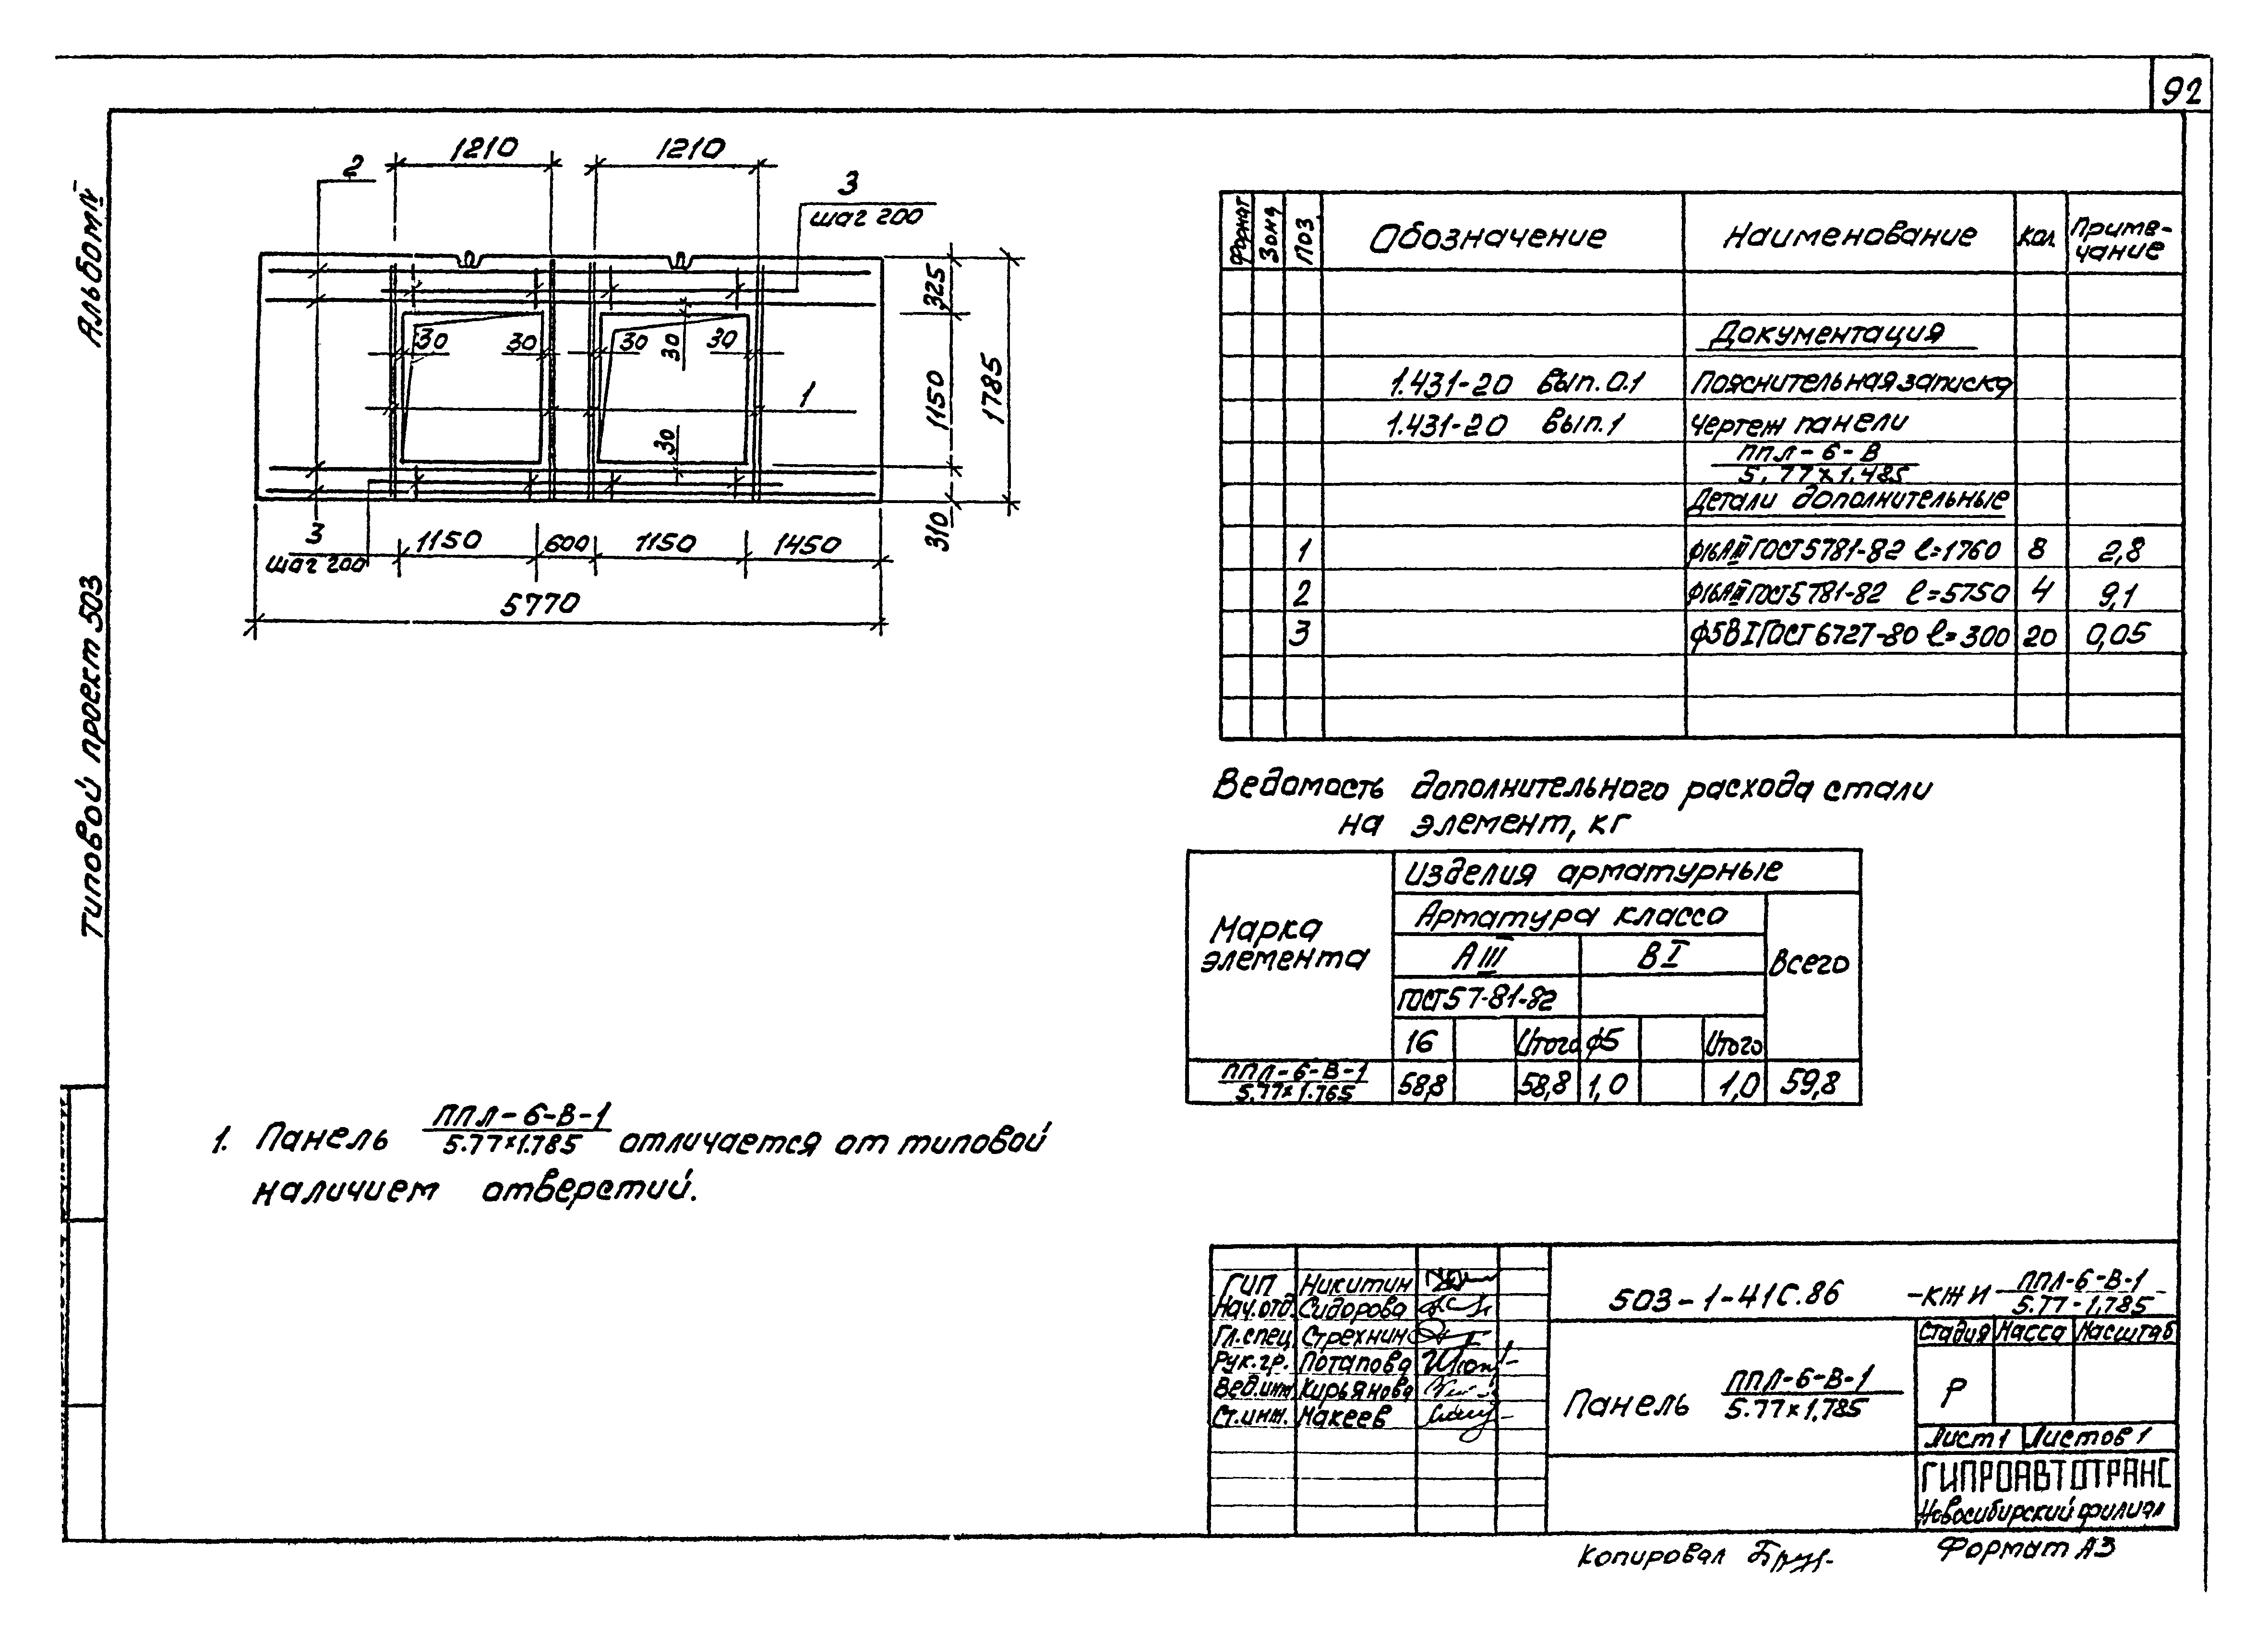 92
Альбом IV
Типовой проект 503
1210 1210
2
3
шаг 200
325
1150
1785
310
30 30 30 30 30
30
1
3
шаг 200
1150 600 1150 1450
5770
Формат Зона Поз. Обозначение Наименование Кол. Приме-
чание
Документация
1.431-20 вып. 0.1 Пояснительная записка
1.431-20 вып. 1 Чертеж панели
ППЛ-6-В
5.77×1.485
Детали дополнительные
1 ф16АIII ГОСТ 5781-82 ℓ=1760 8 2,8
2 ф16АIII ГОСТ 5781-82 ℓ=5750 4 9,1
3 ф5ВI ГОСТ 6727-80 ℓ=300 20 0,05
Ведомость дополнительного расхода стали
на элемент, кг
Марка
элемента
Изделия арматурные
Арматура класса
АIII ВI Всего
ГОСТ 57-81-82
16 Итого ф5 Итого
ППЛ-6-В-1
5.77×1.765
58,8 58,8 1,0 1,0 59,8
1. Панель ППЛ-6-В-1
5.77×1.785 отличается от типовой
наличием отверстий.
ГИП Никитин
Нач.отд. Сидорова
Гл.спец. Стрехнин
Рук.гр. Потапова
Вед.инж Кирьянова
Ст.инж. Макеев
503-1-41С.86 -КЖИ ППЛ-6-В-1
5.77-1.785
Панель ППЛ-6-В-1
5.77×1,785
Стадия Масса Масштаб
Р
Лист 1 Листов 1
ГИПРОАВТОТРАНС
Новосибирский филиал
Копировал
Формат А3